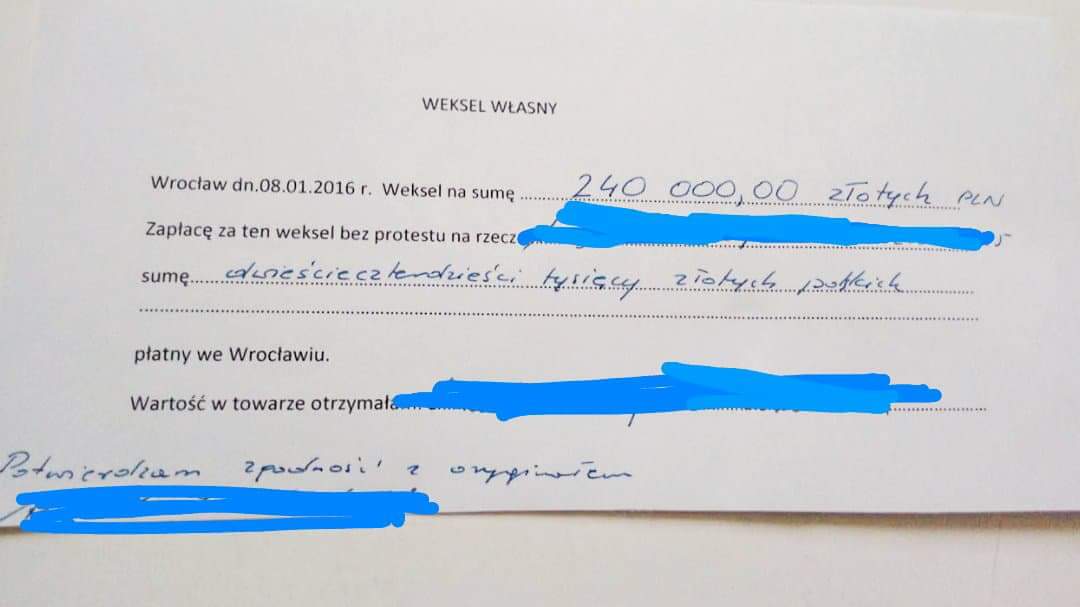 WEKSEL WŁASNY
Wrocław dn.08.01.2016 r. Weksel na sumę ..........240 000,00 złotych PLN
Zapłacę za ten weksel bez protestu na rzecz
sumę......dwieścieczterdzieści tysięcy złotych polskich..........
płatny we Wrocławiu.
Wartość w towarze otrzymała
Potwierdzam zgodność z oryginałem